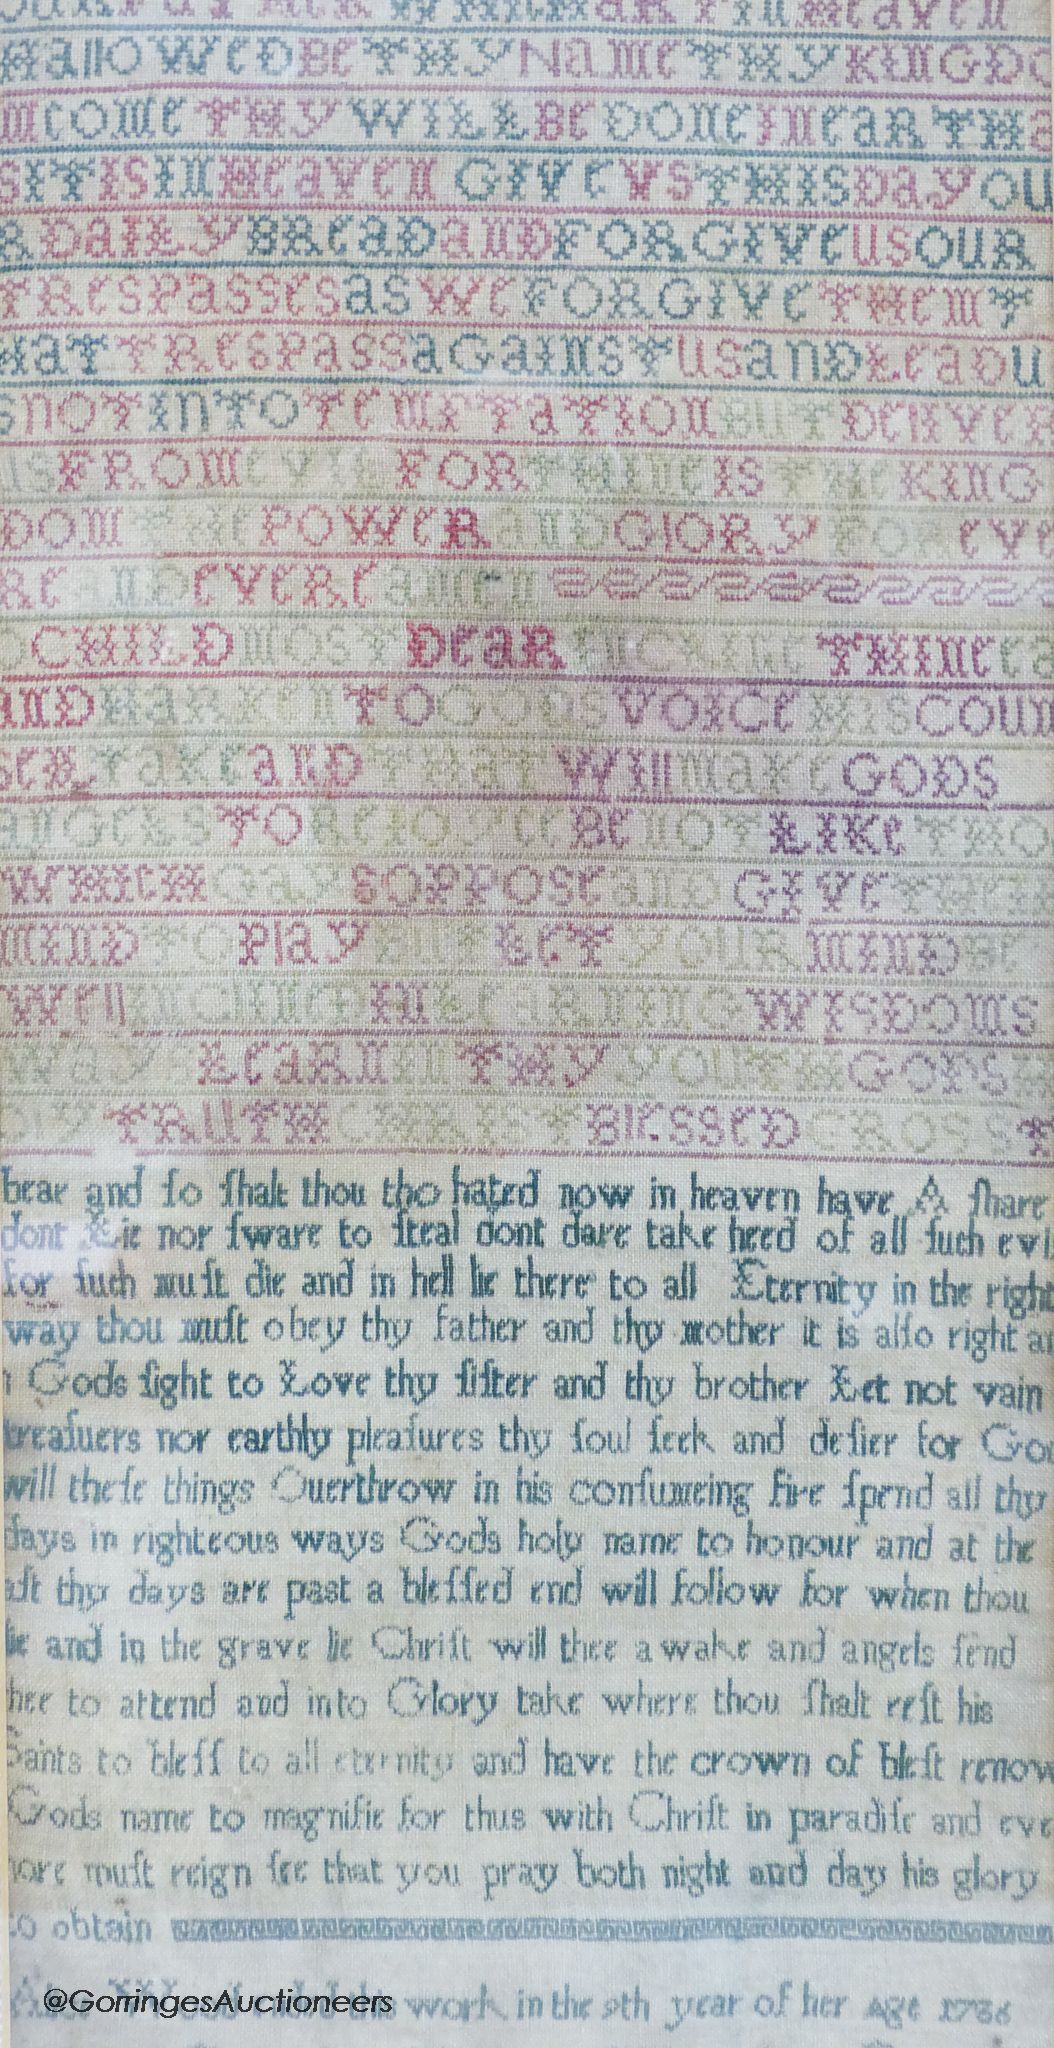 OUR FATHER WHICH ART IN Heaven
HallOWeD Be THY Name THY KInGDO
m COme THY WILL Be DOne In eARTH a
S IT IS In Heaven GIVe VS THIS Day YOU
R DaILY BReaD anD FORGIVe us OUR
TResPasses as We FORGIVe THem T
HaT TResPass aGaInsT us anD Lead u
s noT InTO TemPTaTIOn BuT DelIVeR
us FROm eVIL FOR THIne Is THe KInG
DOm THe POWeR anD GlORY FOR eVe
Re anD eVeRe amen
O CHILD mOsT DeaR InCLIne THIne ea
anD HaRKen TO GODs VOICe HIs COUn
seL Take anD THaT WIll make GODs
anGeLs TO ReJOYCe Be nOT LIKe THO
WHICH GaYs OPPOse anD GIVe THeIR
mInD TO PlaY BuT LeT YOUR mInD Be
Well InClInG In LeaRnInG WIsDOms
Way LeaRn In THY YOuTH GODs H
OLY TRuTH CHRIsT BlesseD CROss T
bear and ſo ſhalt thou tho hated now in heaven have A ſhare
dont Lie nor ſware to ſteal dont dare take heed of all ſuch evil
for ſuch muſt die and in hell lie there to all Eternity in the right
way thou muſt obey thy father and thy mother it is alſo right an
n Gods ſight to Love thy ſiſter and thy brother Let not vain
treaſuers nor earthly pleaſures thy ſoul ſeek and deſier for God
will theſe things Ouerthrow in his conſumeing fire ſpend all thy
days in righteous ways Gods holy name to honour and at the
aſt thy days are past a bleſſed end will follow for when thou
die and in the grave lie Chriſt will thee awake and angels ſend
thee to attend and into Glory take where thou ſhalt reſt his
Saints to bleſſ to all eternity and have the crown of bleſt renow
Gods name to magnifie for thus with Chriſt in paradiſe and eve
more muſt reign ſee that you pray both night and day his glory
to obtain
@GorringesAuctioneers
work in the 9th year of her age 1736